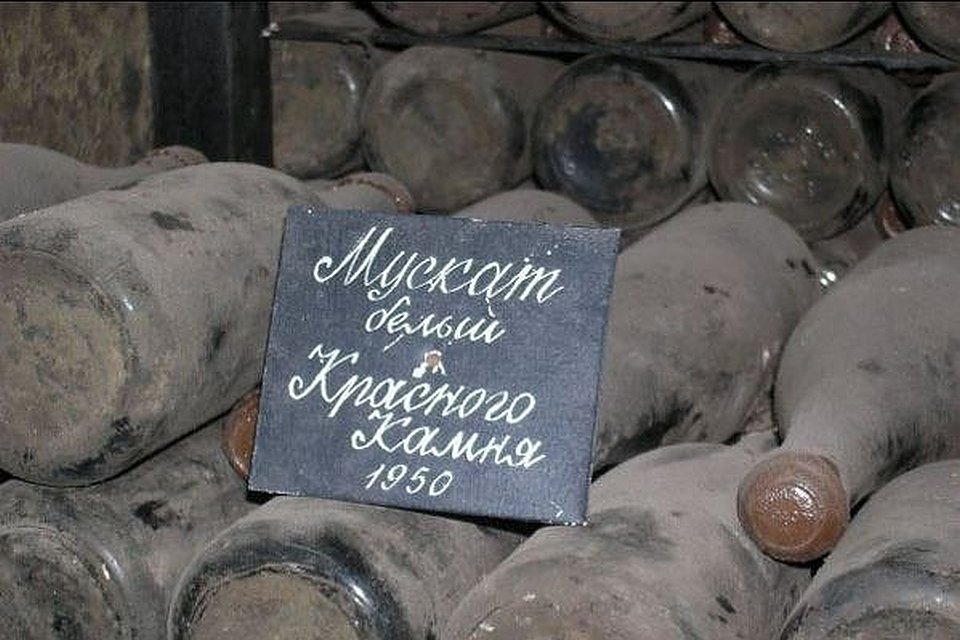 Мускат
белый
Красного
Камня
1950